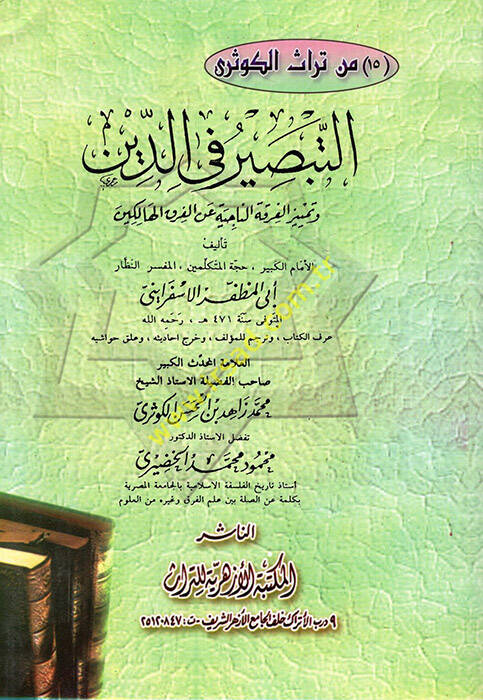 (١٥) من تراث الكوثرى
التبصير في الدين
وتمييز الفرقة الناجية عن الفرق الهالكين
تأليف
الإمام الكبير ، حجة المتكلمين ، المفسر النظار
أبى المظفر الاسفراينى
المتوفى سنة ٤٧١ هـ ، رحمه الله
عرف الكتاب ، وترجم للمؤلف ، وخرج أحاديثه ، وعلق حواشيه
العلامة المحدث الكبير
صاحب الفضيلة الاستاذ الشيخ
محمد زاهد بن الحسن الكوثرى
تفضل الاستاذ الدكتور
محمود محمد الخضيرى
أستاذ تاريخ الفلسفة الاسلامية بالجامعة المصرية
بكلمة عن الصلة بين علم الفرق وغيره من العلوم
الناشر
المكتبة الأزهرية للتراث
٩ درب الأتراك خلف الجامع الأزهر الشريف - ت : ٢٥١٢٠٨٤٧